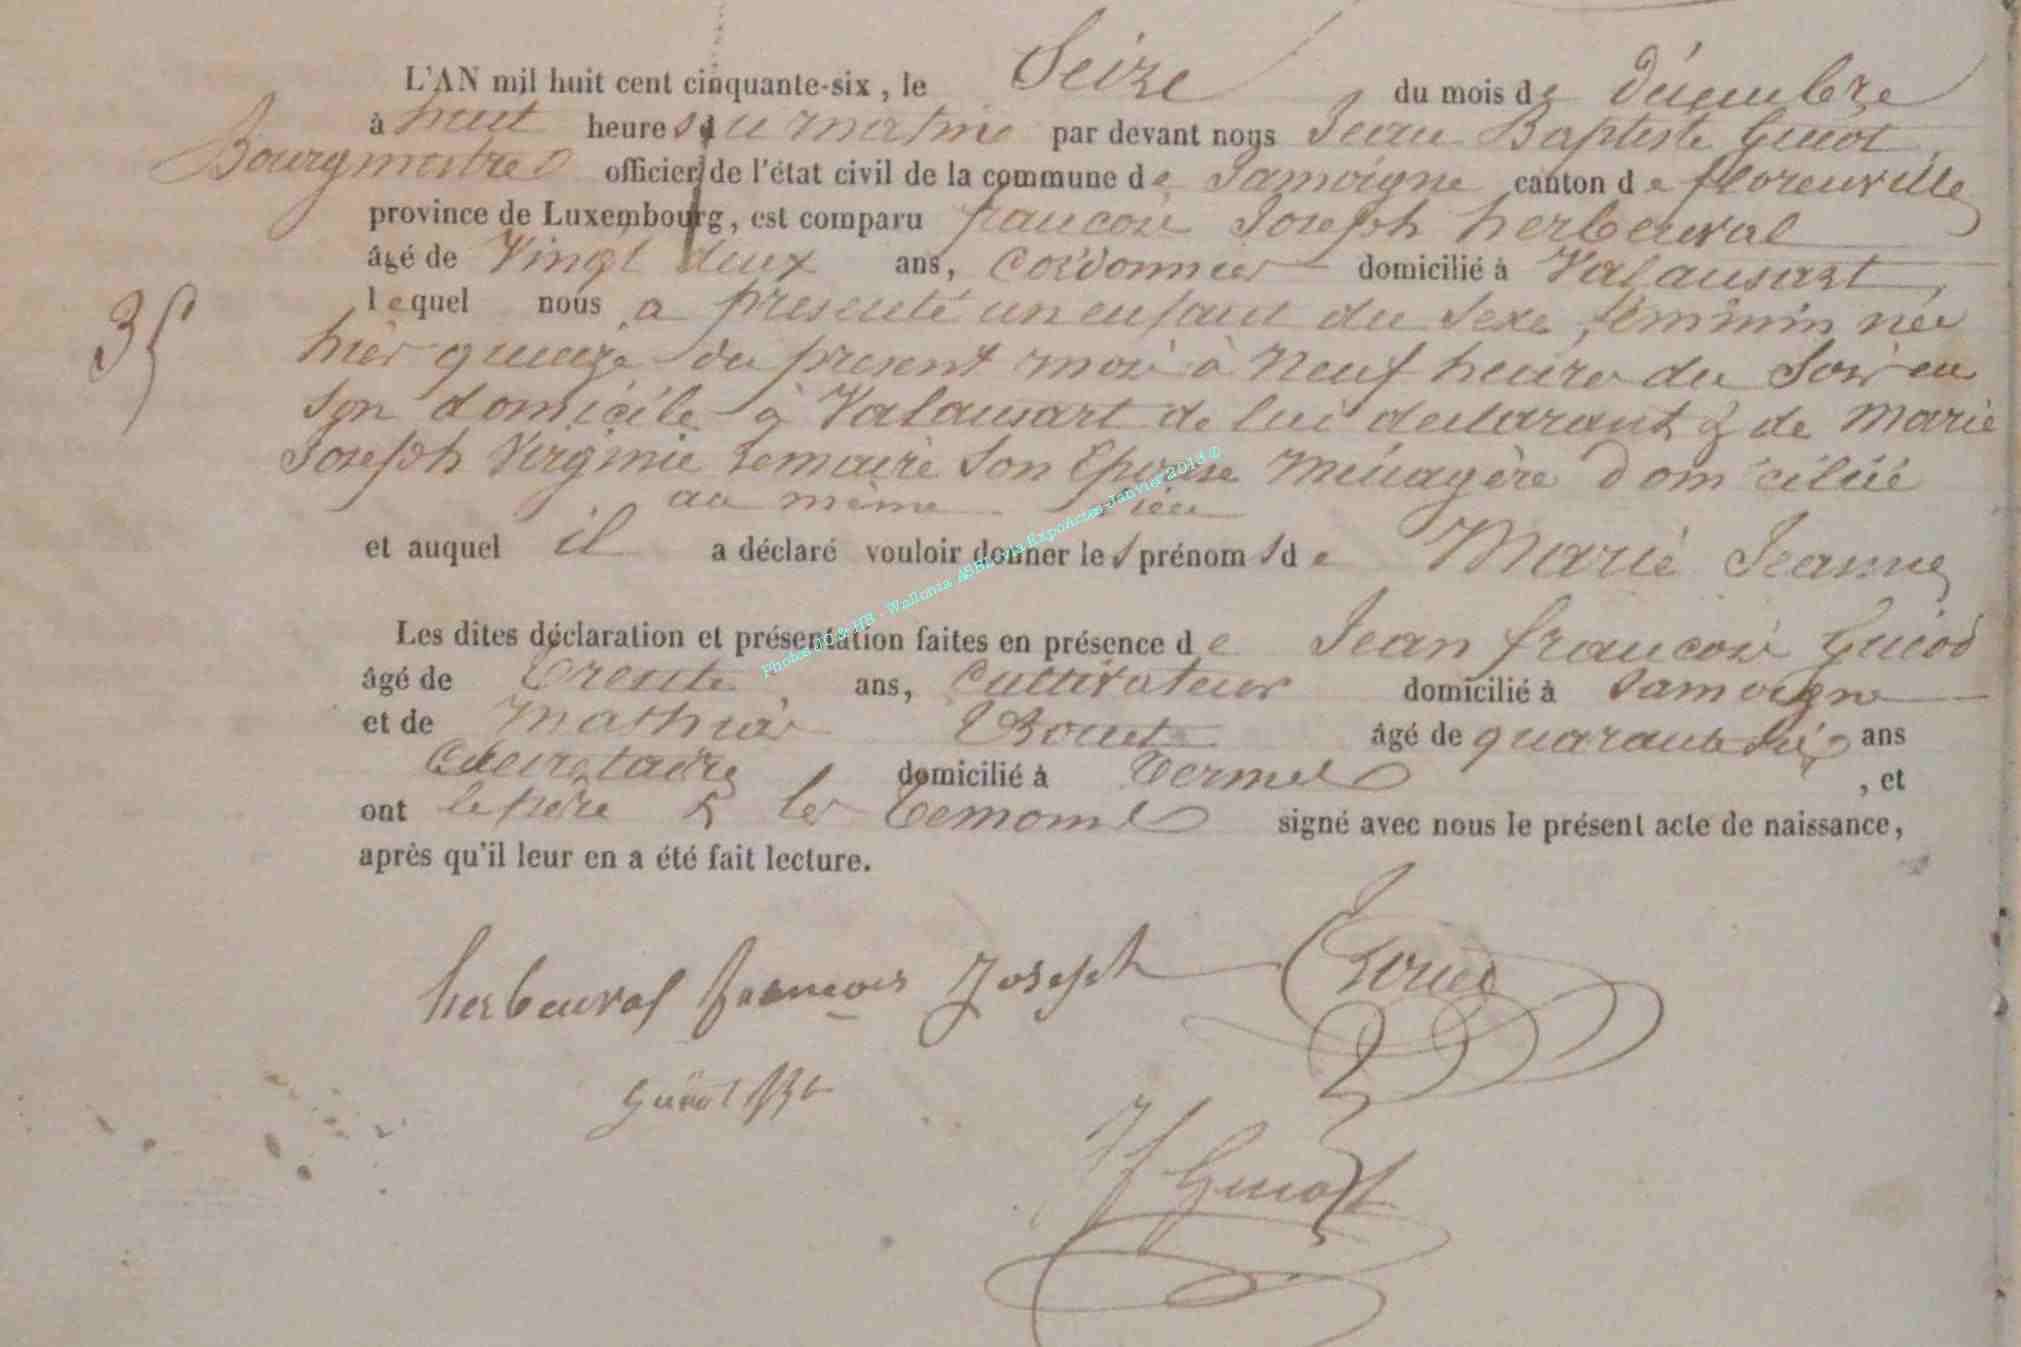 L'AN mil huit cent cinquante-six, le Seize du mois de décembre
à huit heures du matin par devant nous Jean Baptiste Guiot
Bourgmestre officier de l'état civil de la commune de Jamoigne canton de florenville
province de Luxembourg, est comparu francois Joseph herbeuval
âgé de Vingt deux ans, Cordonnier domicilié à Valansart
lequel nous a presenté un enfant du sexe féminin née
35
hier quinze du present mois à Neuf heures du Soir en
son domicile à Valansart de lui declarant & de Marie
Joseph Virginie Lemaire Son Epouse Ménagère domiciliée
au même lieu
et auquel il a déclaré vouloir donner les prénoms de Marie Jeanne
Les dites déclaration et présentation faites en présence de Jean francois Guiot
âgé de trente ans, Cultivateur domicilié à Jamoigne
et de Mathias âgé de quarante six ans
domicilié à Termes, et
ont le père & les temoins signé avec nous le présent acte de naissance,
après qu'il leur en a été fait lecture.
herbeuval francois Joseph
Guiot
Jf Guiot
Photos JC & HB - Wallonia ASBL via ExpoActes Janvier 2013 ©